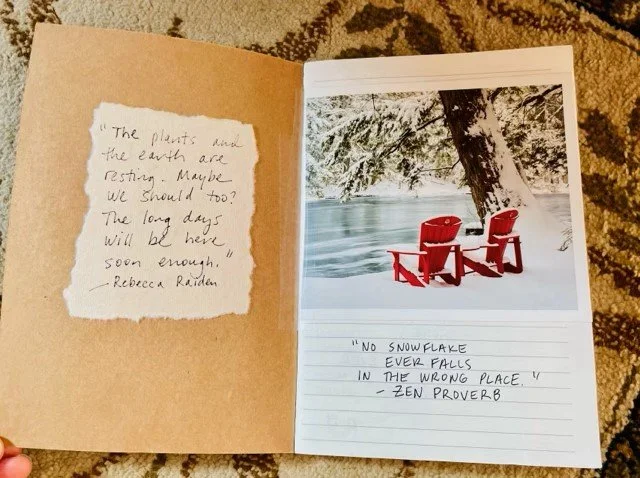 "The plants and
the earth are
resting. Maybe
we should too?
The long days
will be here
soon enough."
- Rebecca Raiden
"NO SNOWFLAKE
EVER FALLS
IN THE WRONG PLACE."
- ZEN PROVERB